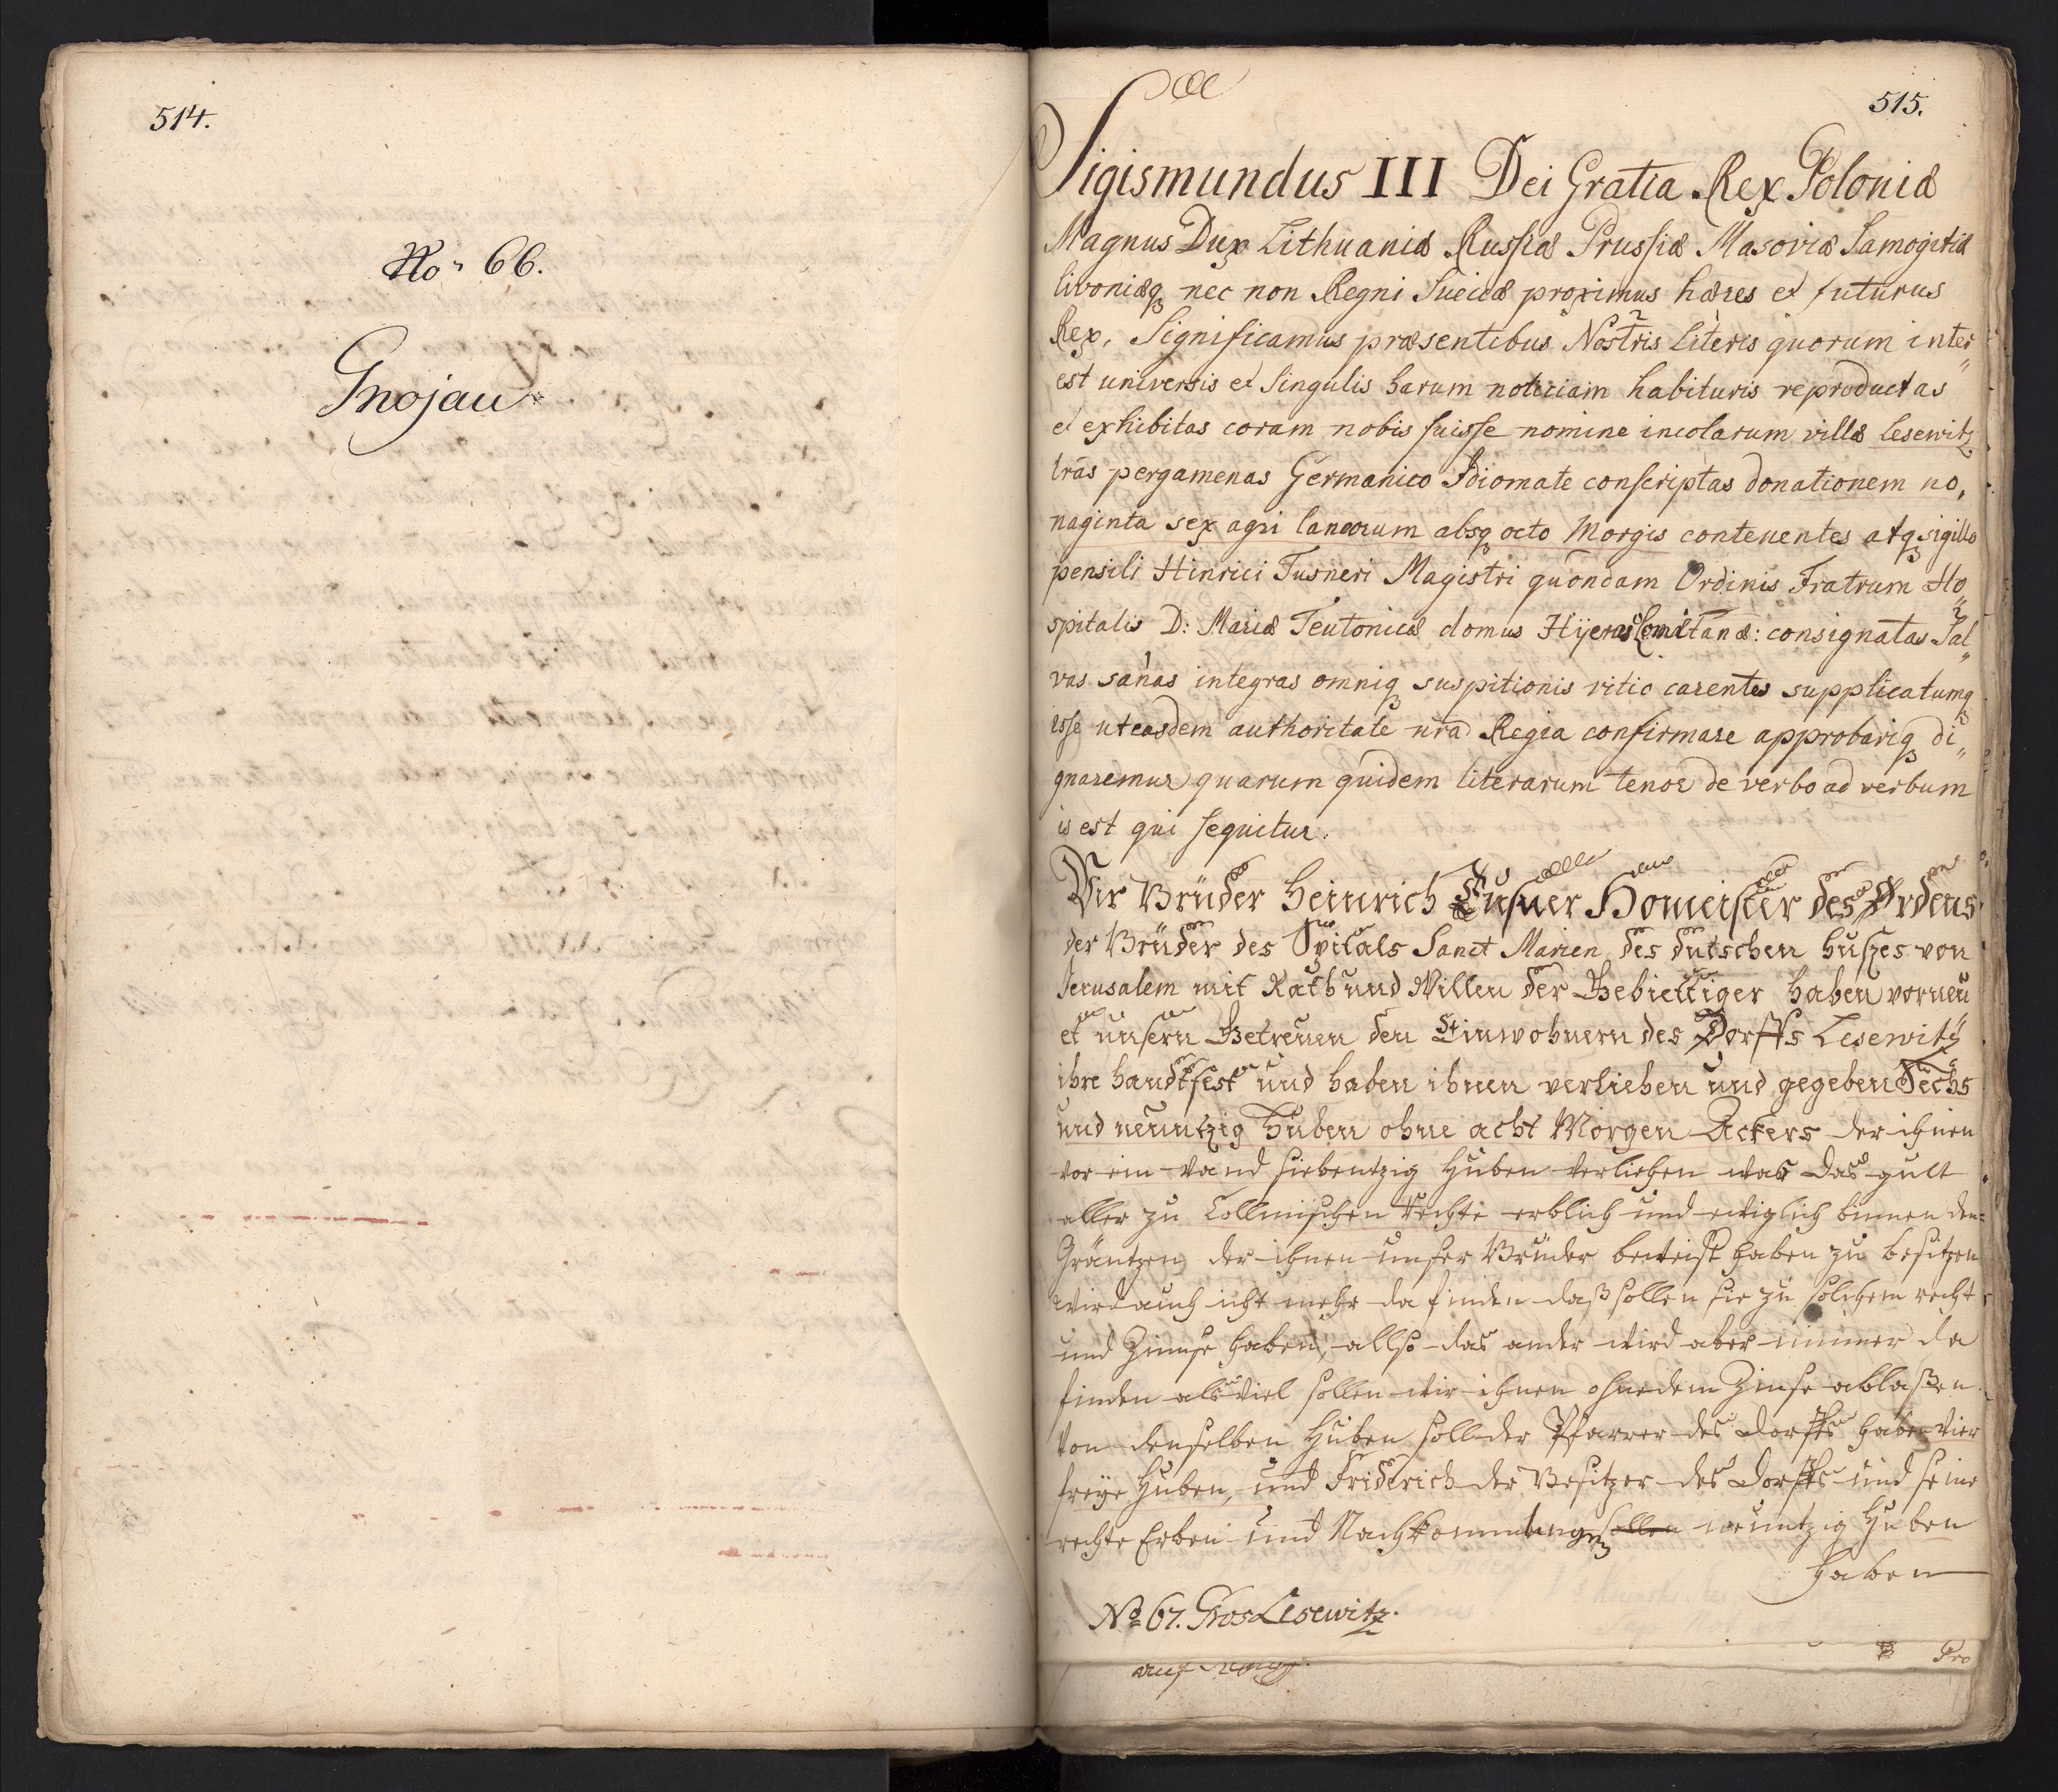 514.
No 66.
Gnojau
515.
Sigismundus III Dei Gratia Rex Poloniæ
Magnus Dux Lithuaniæ Russiæ Prussiæ Masoviæ Samogitiæ
livoniæq nec non Regni Sueciæ proximus hæres et futurus
Rex. Significamus præsentibus Nostris Literis quorum inter
est universis et Singulis harum noticiam habituris reproductas
et exhibitas coram nobis fuisse nomine incolarum villæ Lesewitz
lras pergamenas Germanico Idiomate conscriptas donationem no,
naginta sex agri laneorum absq octo Morgis contenentes atq sigillo
pensili Hinrici Tusneri Magistri quondam Ordinis Fratrum Ho
spitalis D: Mariæ Teutonicæ domus Hijerosolomitanæ: consignatas Sal
vas sanas integras omniq suspitionis vitio carentes supplicatumq
esse ut easdem authoritate nra Regia confirmare approbariq di
gnaremur quarum quidem literarum tenor de verbo ad verbum
is est qui sequitur.
Wir Brüder Heinrich Tusner Homeister des Ordens
der Brüder des Spitals Sanct Marien des dutschen huses von
Jerusalem mit Rath und Willen der Gebiettiger haben vorneu
et unsern Getreuen den Einwohnern des Dorffs Lesewitz
ihre handtfest und haben ihnen verliehen und gegeben Sechs
und neuntzig Huben ohne acht Morgen Ackers der ihnen
vor ein vand siebentzig Huben verliehen was das gult
aller zu Collmischen Rechte erblich und ewiglich binnen den
Gräntzen der ihnen unser Brüder beweist haben zu besitzen
Wird auch icht mehr da finden daß sollen sie zu solchem recht
und Zinnse haben, allso das ander wird aber immer da
finden als Viel sollen wir ihnen ohne dem Zinse ablaßen
Von denselben Huben soll der Pfarrer des Dorffs haben Vier
freye Huben, und Friderich der Besitzer des Dorffs und seine
rechte Erben und Nachkommlinge neuntzig Huben
haben
No 67. Gros Lesewitz.
Pro